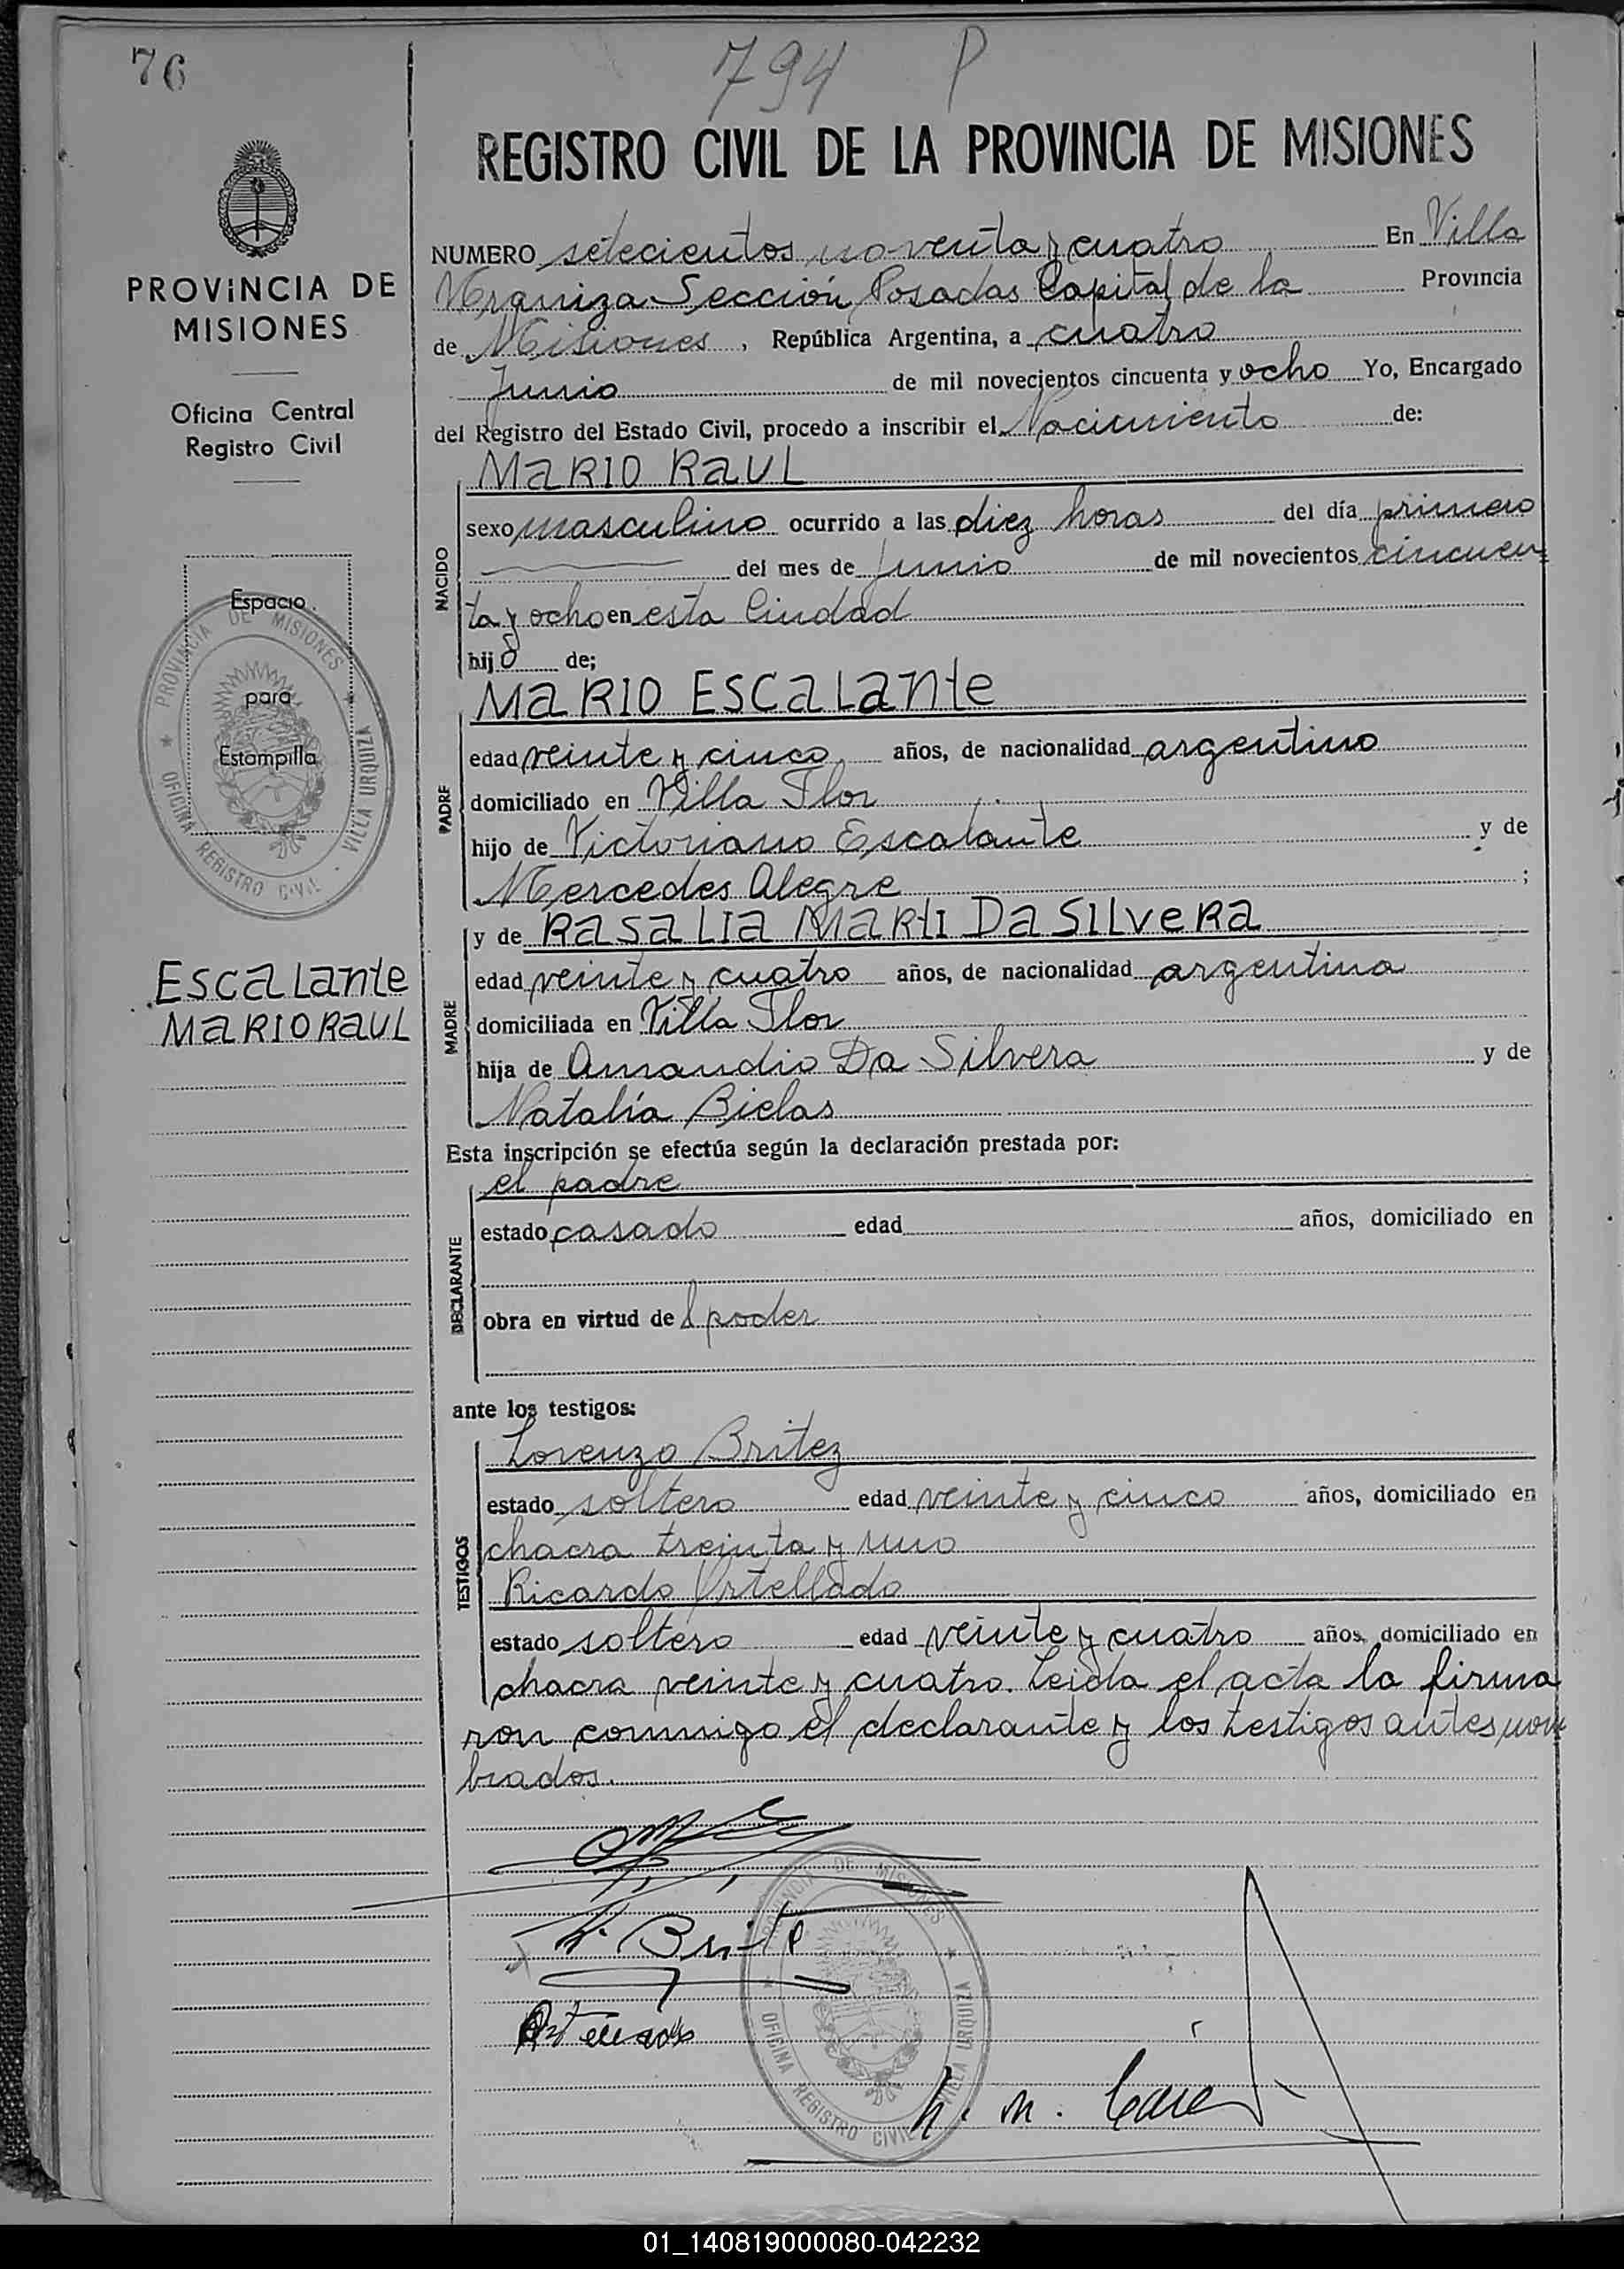 76
794 P
REGISTRO CIVIL DE LA PROVINCIA DE MISIONES
PROVINCIA DE
MISIONES
Oficina Central
Registro Civil
Espacio
para
Estampilla
PROVINCIA DE MISIONES
OFICINA REGISTRO CIVIL - VILLA URQUIZA
Escalante
MARIO RAUL
NUMERO setecientos noventa y cuatro En Villa
Urquiza Sección Posadas Capital de la Provincia
de Misiones, República Argentina, a cuatro
Junio de mil novecientos cincuenta y ocho Yo, Encargado
del Registro del Estado Civil, procedo a inscribir el Nacimiento de:
NACIDO
MARIO RAUL
sexo masculino ocurrido a las diez horas del día primero
del mes de Junio de mil novecientos cincuen
ta y ocho en esta Ciudad
hijo de;
PADRE
MARIO ESCALANTE
edad veinte y cinco años, de nacionalidad argentino
domiciliado en Villa Flor
hijo de Victoriano Escalante y de
Mercedes Alegre ;
MADRE
y de RASALIA MARTI DA SILVERA
edad veinte y cuatro años, de nacionalidad argentina
domiciliada en Villa Flor
hija de Amandio Da Silvera y de
Natalia Bielas
Esta inscripción se efectúa según la declaración prestada por:
DECLARANTE
el padre
estado casado edad años, domiciliado en
obra en virtud de l poder
ante los testigos:
TESTIGOS
Lorenzo Britez
estado soltero edad veinte y cinco años, domiciliado en
chacra treinta y uno
Ricardo Ortellado
estado soltero edad veinte y cuatro años, domiciliado en
chacra veinte y cuatro. Leida el acta la firma
ron conmigo el declarante y los testigos antes nom
brados.
PROVINCIA DE MISIONES
OFICINA REGISTRO CIVIL VILLA URQUIZA
01_140819000080-042232